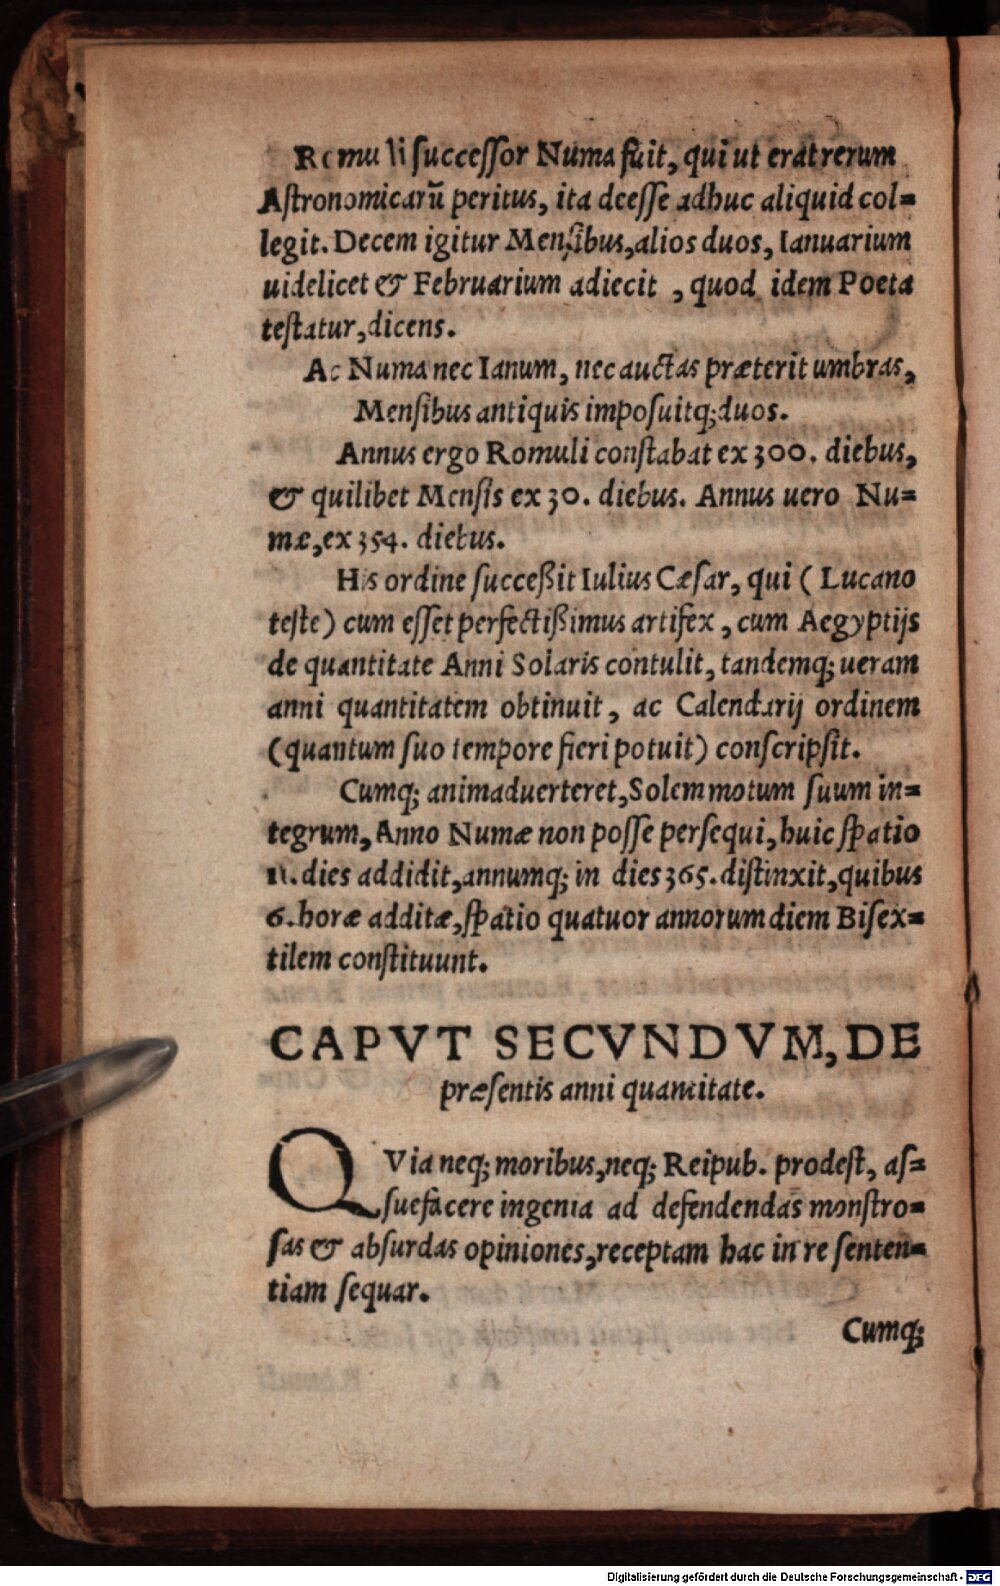 Romuli successor Numa fuit, qui ut erat rerum
Astronomicarū peritus, ita deesse adhuc aliquid col=
legit. Decem igitur Mensibus, alios duos, Ianuarium
uidelicet & Februarium adiecit , quod idem Poeta
testatur, dicens.
Ac Numa nec Ianum, nec auctas præterit umbras,
Mensibus antiquis imposuitq; duos.
Annus ergo Romuli constabat ex 300. diebus,
& quilibet Mensis ex 30. diebus. Annus uero Nu=
mæ, ex 354. diebus.
His ordine succeßit Iulius Cæsar, qui ( Lucano
teste) cum esset perfectißimus artifex , cum Aegyptijs
de quantitate Anni Solaris contulit, tandemq; ueram
anni quantitatem obtinuit , ac Calendarij ordinem
(quantum suo tempore fieri potuit) conscripsit.
Cumq; animaduerteret, Solem motum suum in=
tegrum, Anno Numæ non posse persequi, huic spatio
11. dies addidit, annumq; in dies 365. distinxit, quibus
6. horæ additæ, spatio quatuor annorum diem Bisex=
tilem constituunt.
CAPVT SECVNDVM, DE
præsentis anni quantitate.
QVia neq; moribus, neq; Reipub. prodest, as=
suefacere ingenia ad defendendas monstro=
sas & absurdas opiniones, receptam hac in re senten=
tiam sequar.
Cumq;
Digitalisierung gefördert durch die Deutsche Forschungsgemeinschaft - DFG